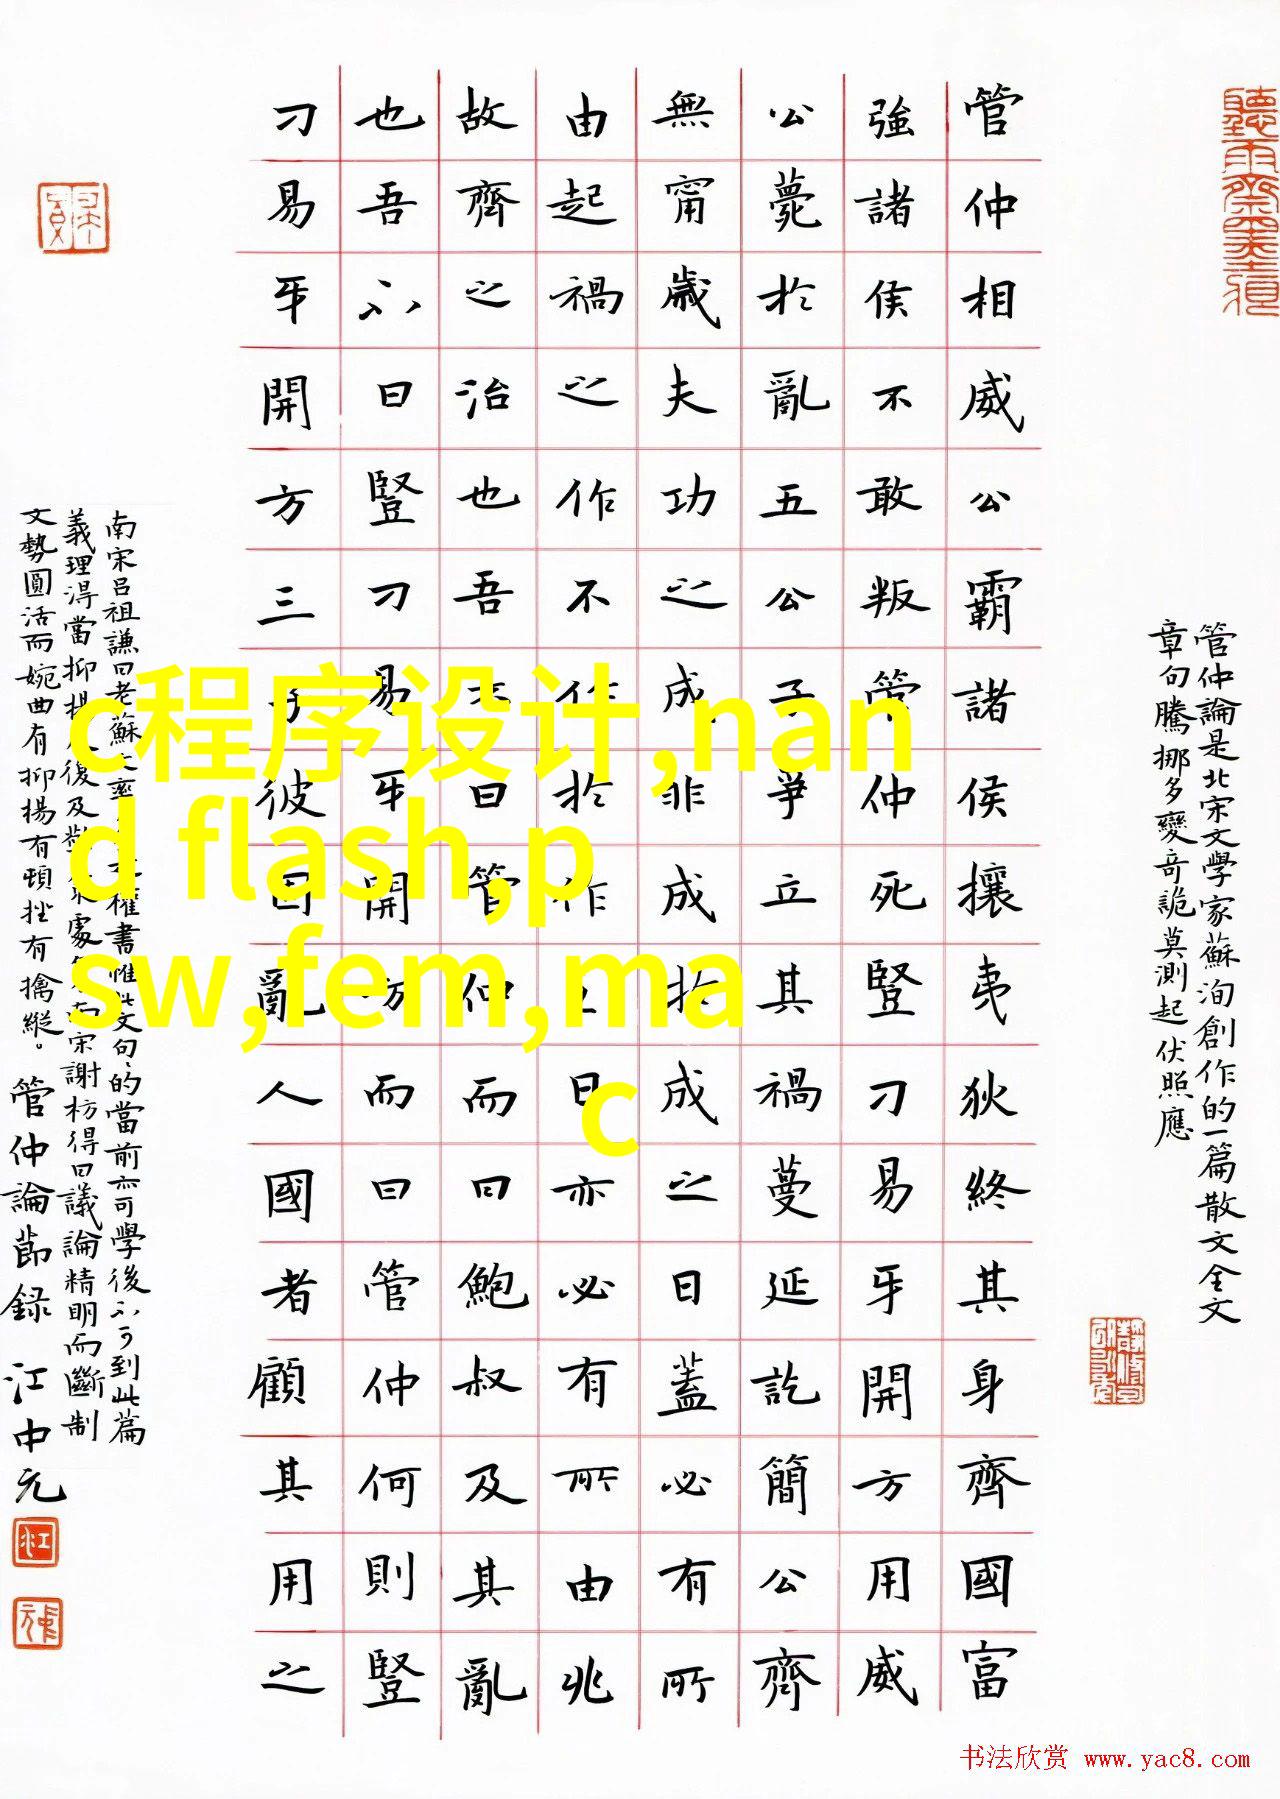 管仲論是北宋文學家蘇洵創作的一篇散文全文
章句騰挪多變奇詭莫測起伏照應
管仲相威公霸諸侯攘夷狄終其身齊國富
強諸侯不敢叛管仲死豎刁易牙開方用威
公薨於亂五公子爭立其禍蔓延訖簡公齊
無甯歲夫功之成非成於成之日蓋必有所
由起禍之作不作於作之日亦必有所由兆
故齊之治也吾不曰管仲而曰鮑叔及其亂
也吾不曰豎刁易牙開方而曰管仲何則豎
刁易牙開方三子彼固亂人國者顧其用之
南宋呂祖謙曰老蘇大率權書惟此文句句的當前亦可學後不可到此篇
義理淂當抑揚反復及警處南宋謝枋得曰議論精明而斷制
文勢圓活而婉曲有抑揚有頓挫有擒縱。管仲論節錄 江中元
c程序设计,nan
d flash,p
sw,fem,ma
c
书法欣赏 www.yac8.com